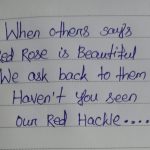 When others say's
Red Rose is Beautiful
We ask back to them
Haven't You seen
our Red Hackle....